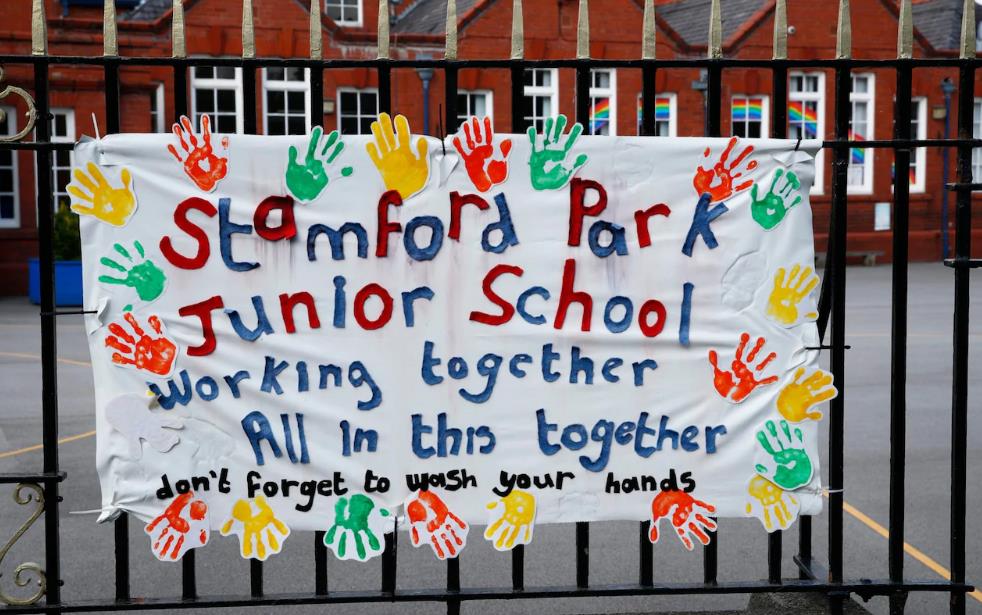 Stamford Park
Junior School
Working together
All in this together
don't forget to wash your hands